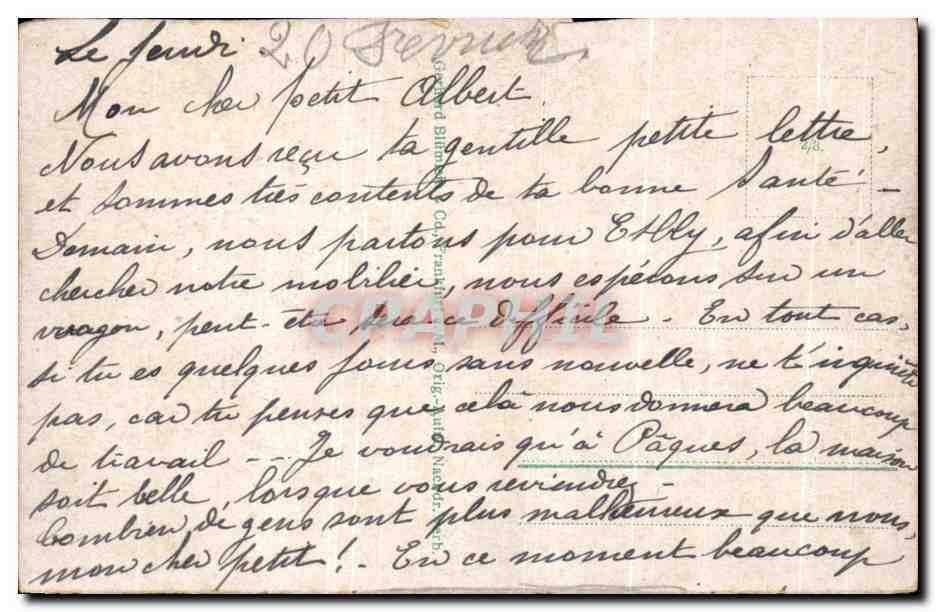 Le Jeudi 20 Fevrier.
Mon cher petit Albert.
Nous avons reçu ta gentille petite lettre,
et sommes très contents de ta bonne santé. -
Demain, nous partons pour , afin d'aller
chercher notre mobilier, nous espérons sur un
wagon, peut-être sera ce difficile - En tout cas,
si tu es quelques jours sans nouvelle, ne t'inquiète
pas, car tu penses que celà nous donnera beaucoup
de travail - - Je voudrais qu'à Pâques, la maison
soit belle, lorsque vous reviendrez -
Combien de gens sont plus malheureux que nous,
mon cher petit! - En ce moment beaucoup
CPAPHIL